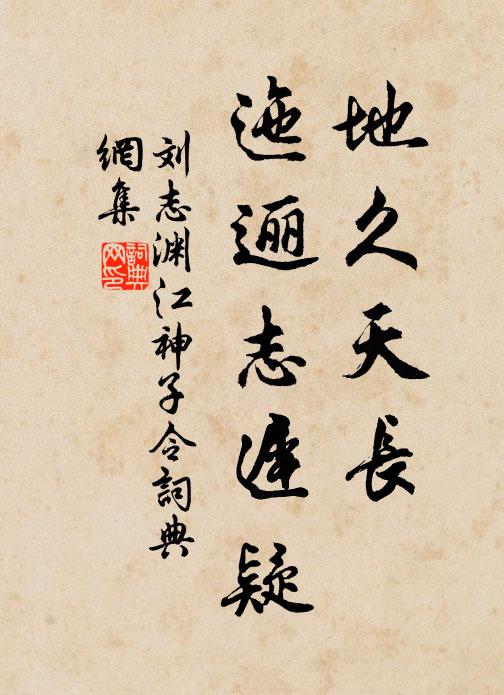 地久天長
迤逦志遲疑
刘志渊江神子令詞典
網集
詞典
网印